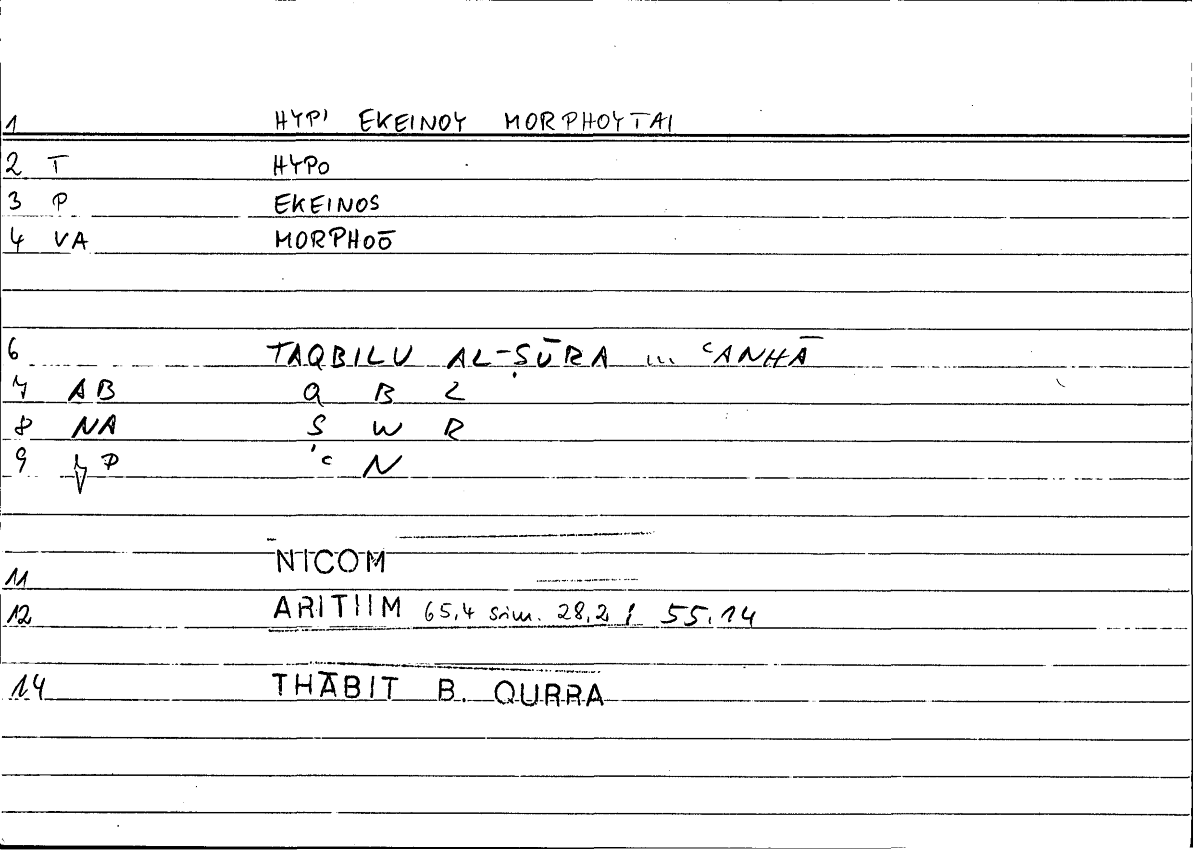 1 HYP' EKEINOY MORPHOYTAI
2 T HYPO
3 P EKEINOS
4 VA MORPHOŌ
6 TAQBILU AL-ṢŪRA ... ʿANHĀ
7 AB Q B L
8 NA Ṣ W R
9 P ʿ N
11 NICOM
12 ARITHM 65,4 sim. 28,2; 55.14
14 THĀBIT B. QURRA